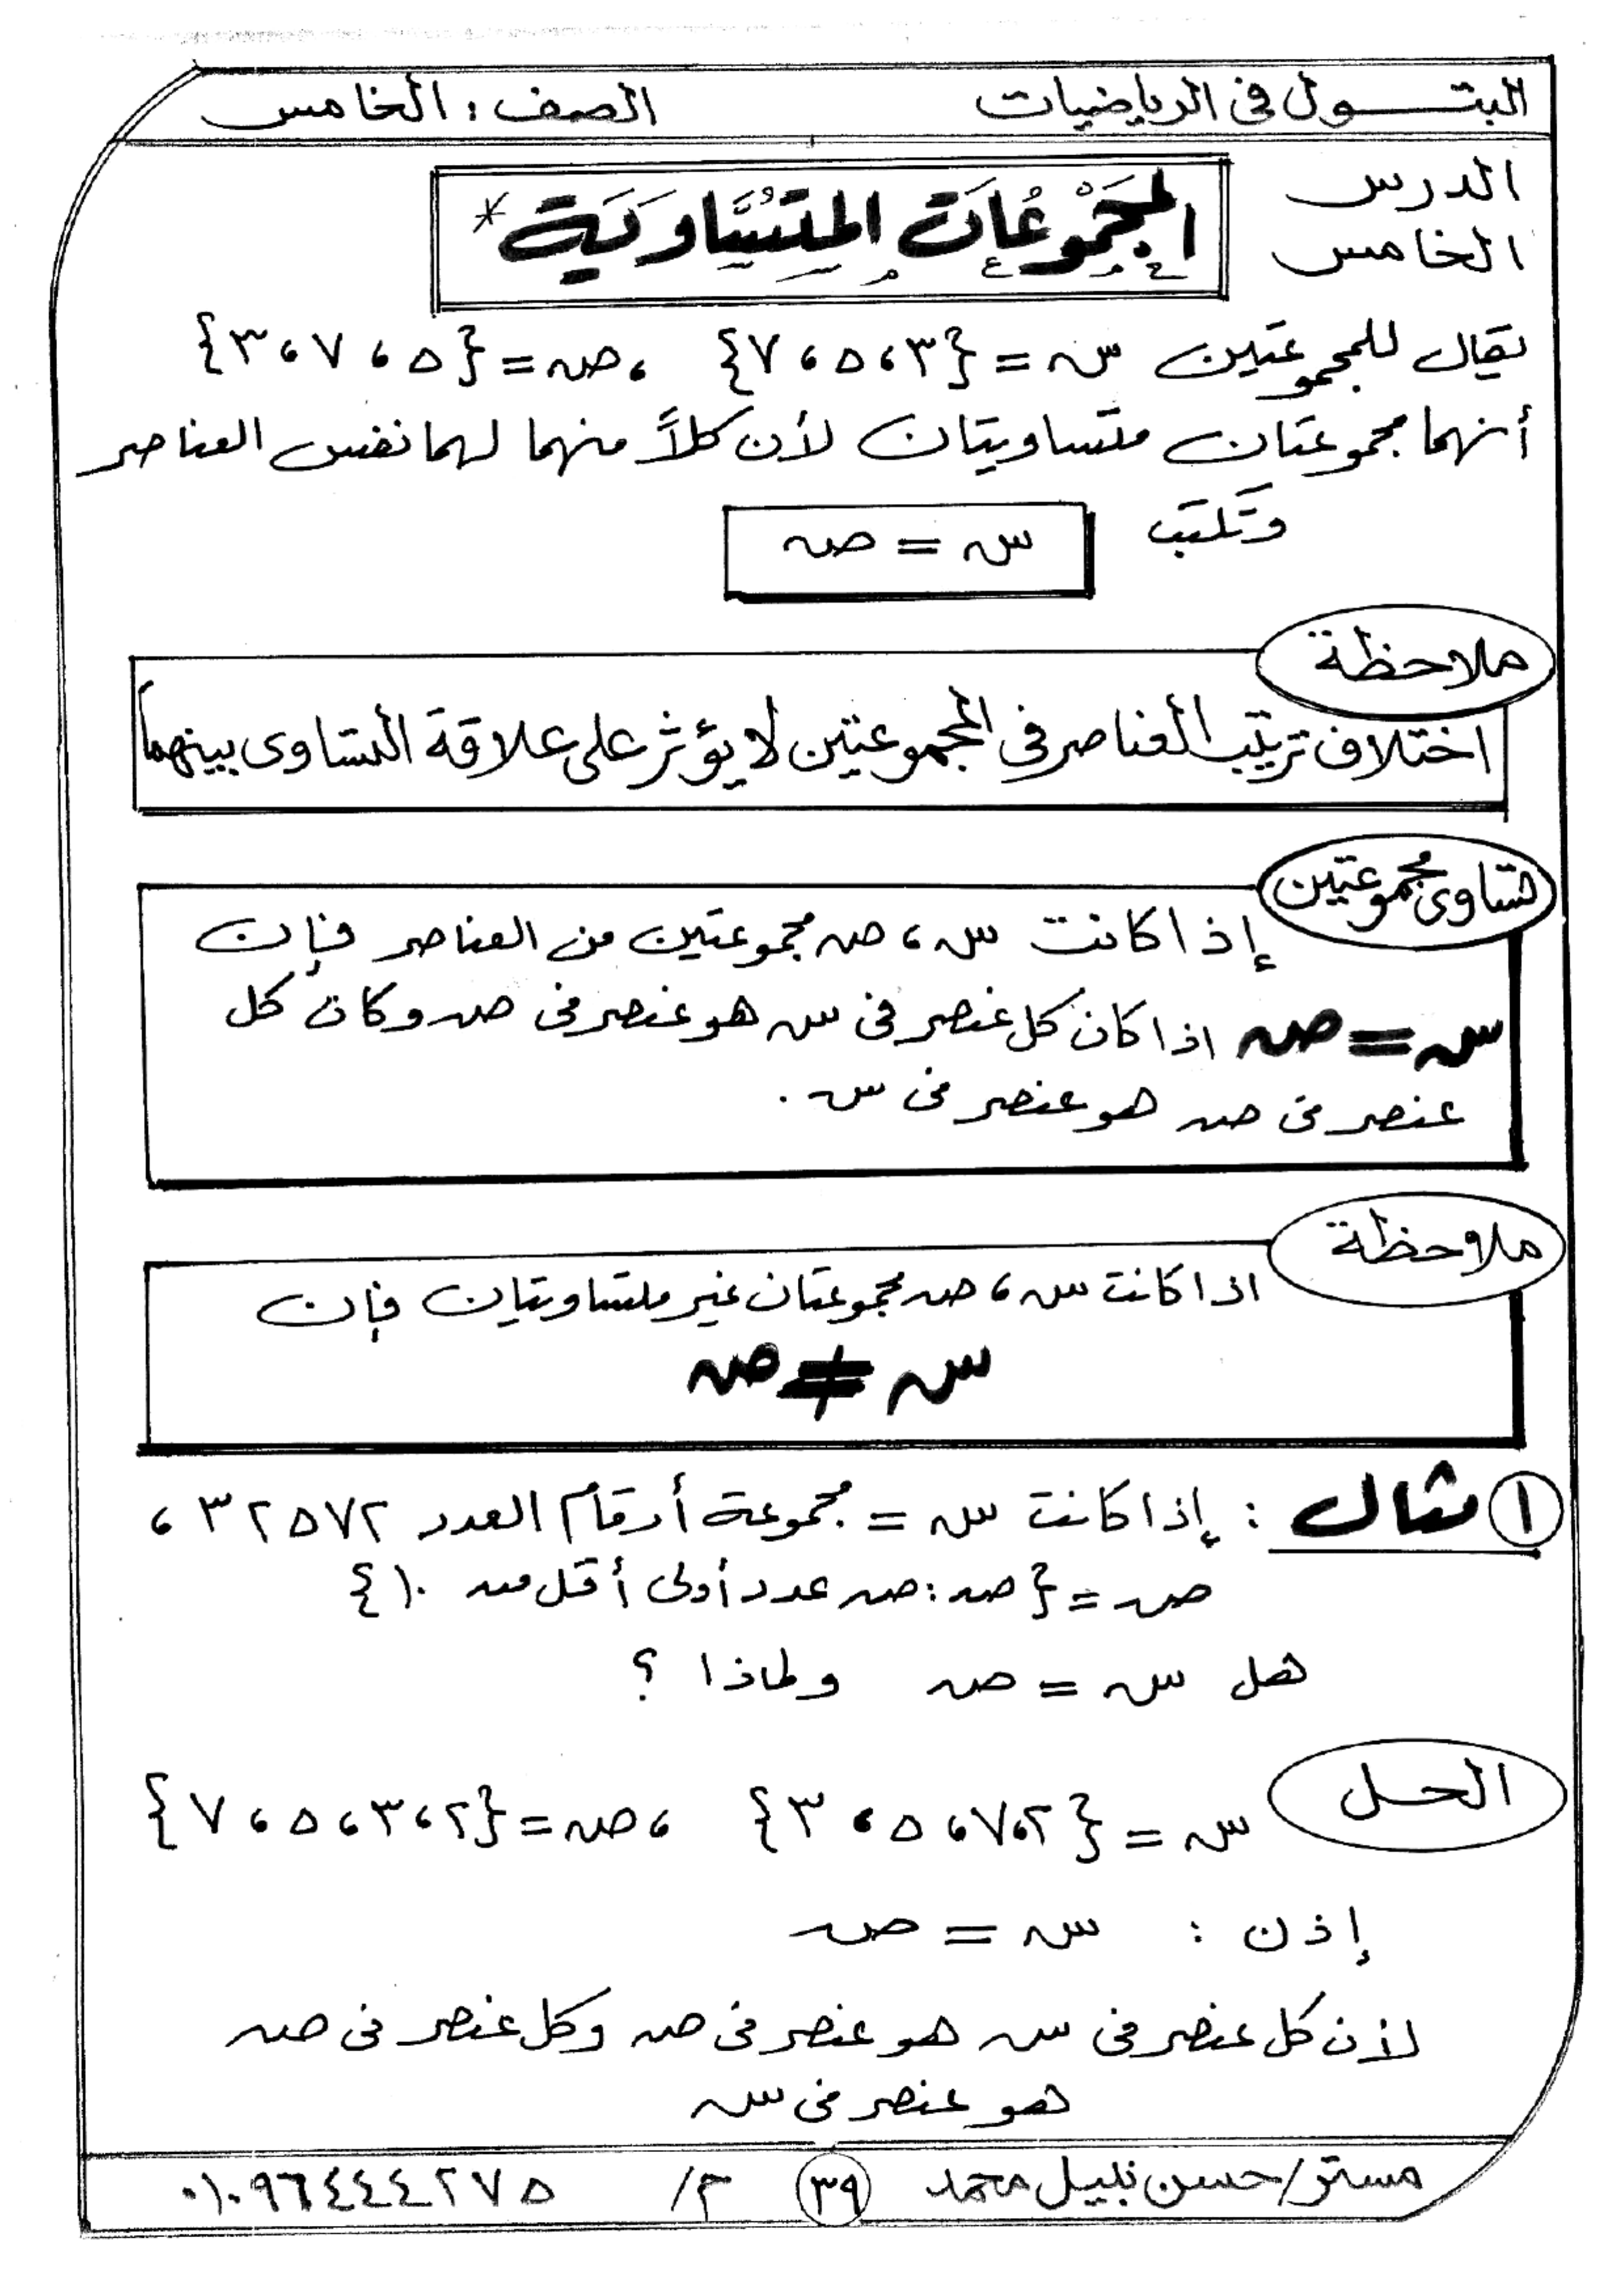 البتـــول فى الرياضيات الصف : الخامس
الدرس
الخامس
المَجْمُوعَات المُتَسَاوِيَة *
يقال للمجموعتين س = {٣ ، ٥ ، ٧} ، ص = {٥ ، ٧ ، ٣}
أنهما مجموعتان متساويتان لأن كلاً منهما لهما نفس العناصر
وتكتب س = ص
ملاحظة
اختلاف ترتيب العناصر فى المجموعتين لا يؤثر على علاقة التساوى بينهما
تساوى مجموعتين
إذا كانت س ، ص مجموعتين من العناصر فإن
س = ص اذا كان كل عنصر فى س هو عنصر فى ص وكان كل
عنصر فى ص هو عنصر فى س .
ملاحظة
اذا كانت س ، ص مجموعتان غير متساويتان فإن
س ≠ ص
١ مثال : إذا كانت س = مجموعة أرقام العدد ٣٢٥٧٢ ،
ص = {ص : ص عدد أولى أقل من ١٠}
هل س = ص ولماذا ؟
الحل
س = {٢ ، ٧ ، ٥ ، ٣} ، ص = {٢ ، ٣ ، ٥ ، ٧}
إذن : س = ص
لأن كل عنصر فى س هو عنصر فى ص وكل عنصر فى ص
هو عنصر فى س
مستر/حسن نبيل محمد ٣٩ م/ ٠١٠٩٦٤٤٤٢٧٥